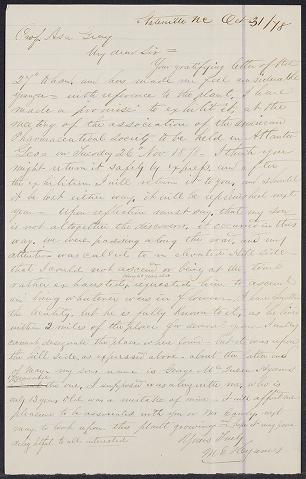 Statesville NC Oct 31/78
Prof Asa Gray
My dear Sir =
Your gratifying letter of the
27th to hand, and has made me feel considerable
younger - with reference to the plant, I have
made a promise to exhibit it, at the
meeting of the association of the American
Pharmaceutical Society to be held in Atlanta
Geoa on Tuesday 26th Nov 1878 - I think you
might return it safely by express and after
the exhibition I will return it to you, and should
it be lost either way, it will be replenished next
year - Upon reflection must say, that my son
is not altogether the discoverer, it occurred in this
way. We were passing along the road, and my
attention was called to an elevated hill side
that I could not ascend as being at the time
rather exhausted, requested him to ascend
and bring whatever was in flower - I have
the locality, but he is fully known to it, as he lives
within 2 miles of the place for several years.
cannot designate the place where found - but it was upon
the hill side, as expressed above - about the
of May - my son's name is George McQueen Hyams
the one, I supposed was along with me, who is
only 13 years old was a mistake of mine - It will afford me
pleasure to be associated with you or Mr Canby next
may to look upon this plant growing -
delightful to all interested
Yours Truly
M. E. Hyams